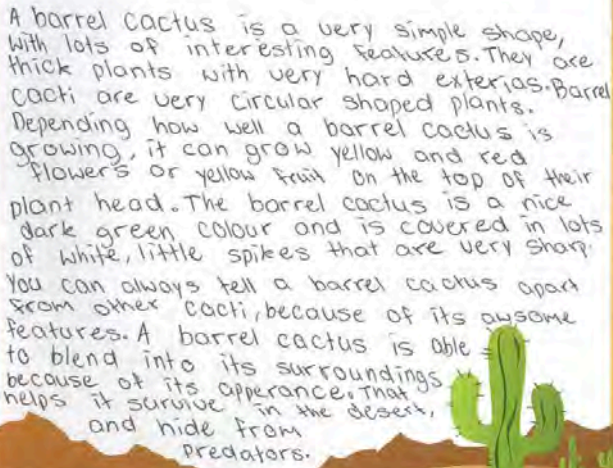 A barrel cactus is a very simple shape,
with lots of interesting features. They are
thick plants with very hard exterias. Barrel
cacti are very circular shaped plants.
Depending how well a barrel cactus is
growing, it can grow yellow and red
flowers or yellow fruit on the top of their
plant head. The barrel cactus is a nice
dark green colour and is covered in lots
of white, little spikes that are very sharp.
You can always tell a barrel cactus apart
from other cacti, because of its awsome
features. A barrel cactus is able
to blend into its surroundings
because of its apperance. That
helps it survive in the desert,
and hide from
predators.